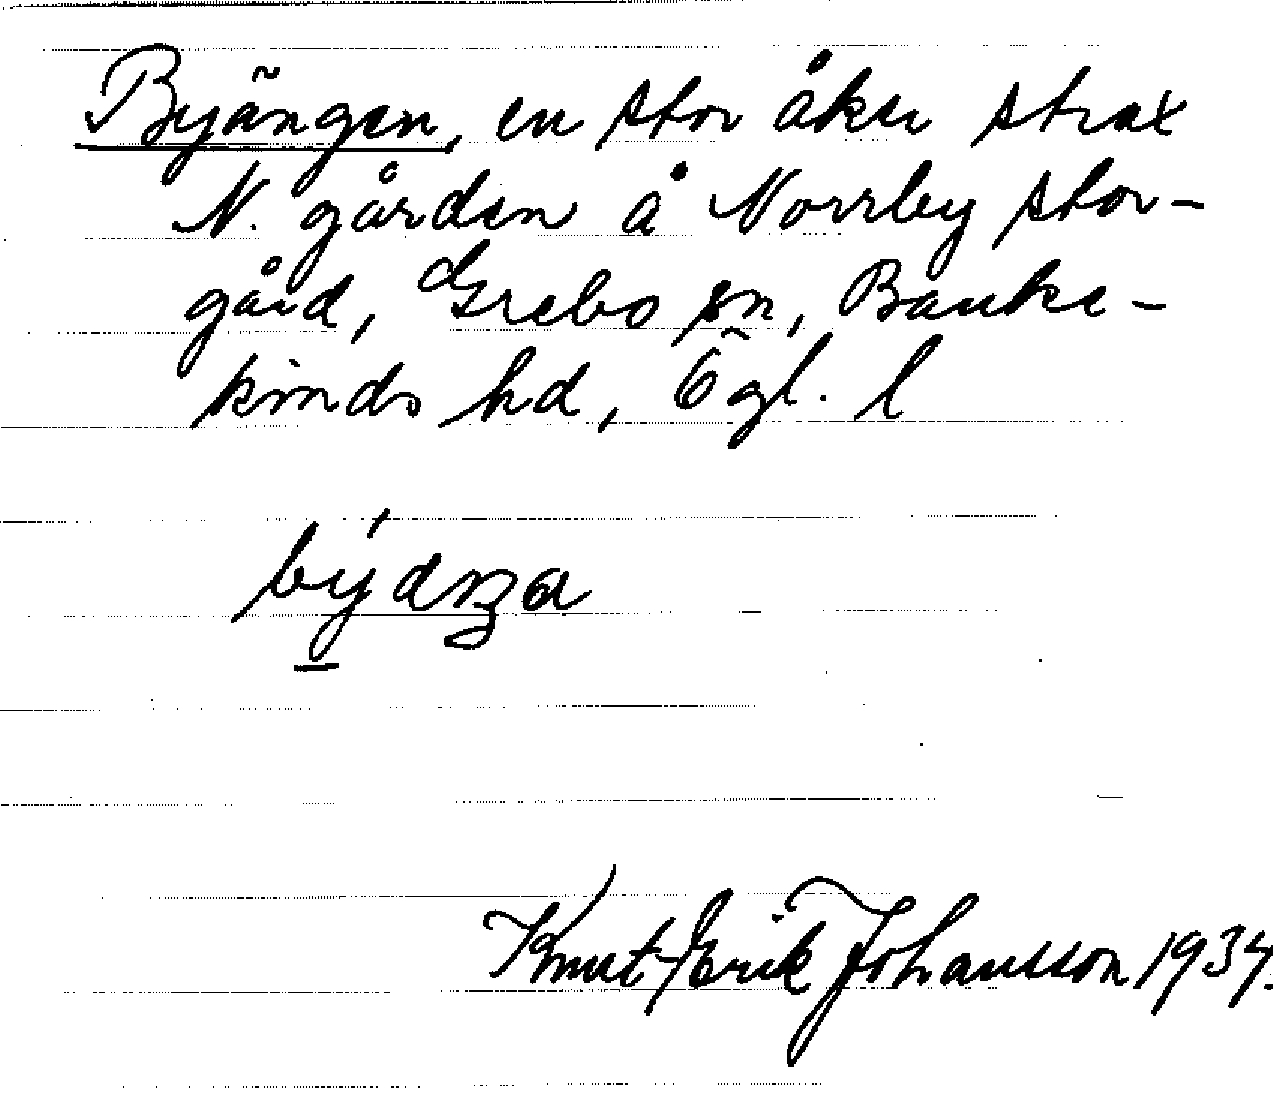 Byängen, en stor åker strax
N. gården å Norrby stor-
gård, Grebo sn, Banke-
kinds hd, Ögl. l
Knut-Erik Johansson 1934.